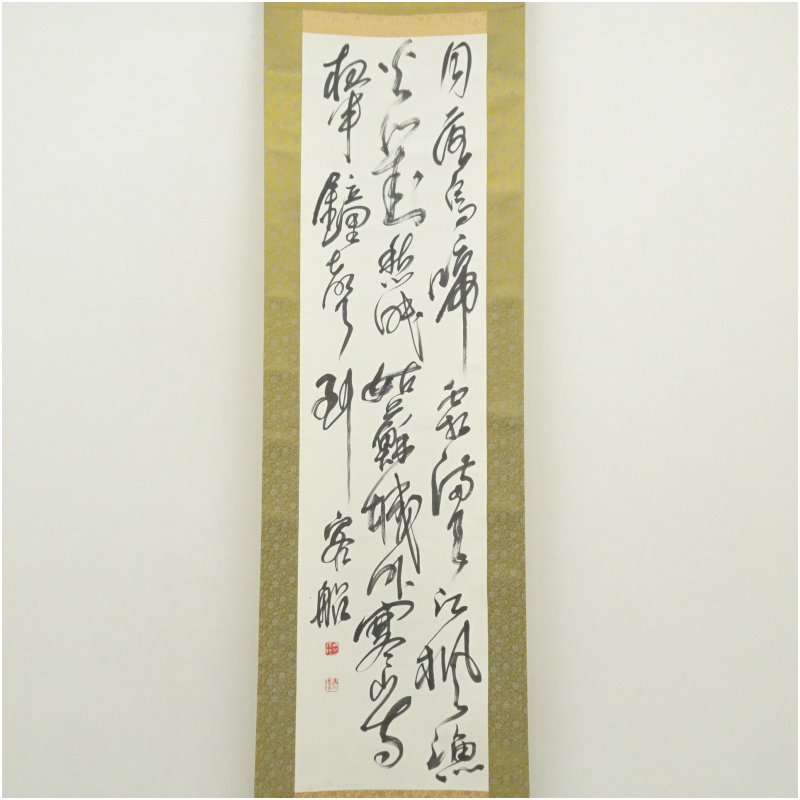 月落烏啼霜満天江楓漁
火對愁眠姑蘇城外寒山寺
夜半鐘聲到客船